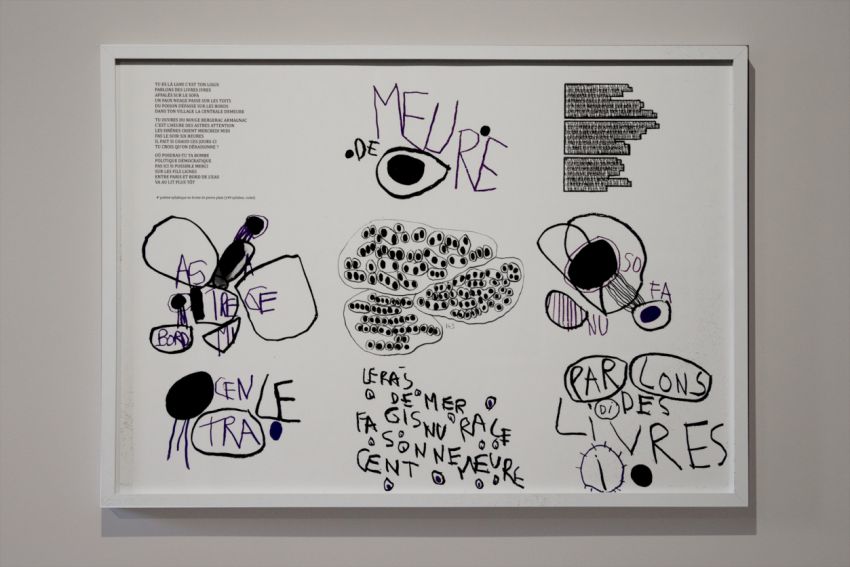 TU ES LÀ LAMI C'EST TON LOGIS
PARLONS DES LIVRES IVRES
AFFALÉS SUR LE SOFA
UN FAUX NUAGE PASSE SUR LES TOITS
DU POISON DÉPASSE SUR LES BORDS
DANS TON VILLAGE LA CENTRALE DEMEURE
TU OUVRES DU ROUGE BERGERAC ARMAGNAC
C'EST L'HEURE DES ASTRES ATTENTION
LES SIRÈNES CRIENT MERCREDI MIDI
PAS LE SOIR SIX HEURES
IL FAIT SI CHAUD CES JOURS-CI
TU CROIS QU'ON DÉRAISONNE ?
OÙ POSERAS-TU TA BOMBE
POLITIQUE DÉMOCRATIQUE
PAS ICI SI POSSIBLE MERCI
SUR LES FILS LIGNES
ENTRE PARIS ET BORD DE L'EAU
VA AU LIT PLUS TÔT
MEURE
DE
AS
TRE CE
BORD MI
163
SO
FA
NU
CEN LE
TRA
DE MER
GIS NU RA CE
FA SONNE MEURE
CENT
PAR LONS
DI DES
LIVRES
i